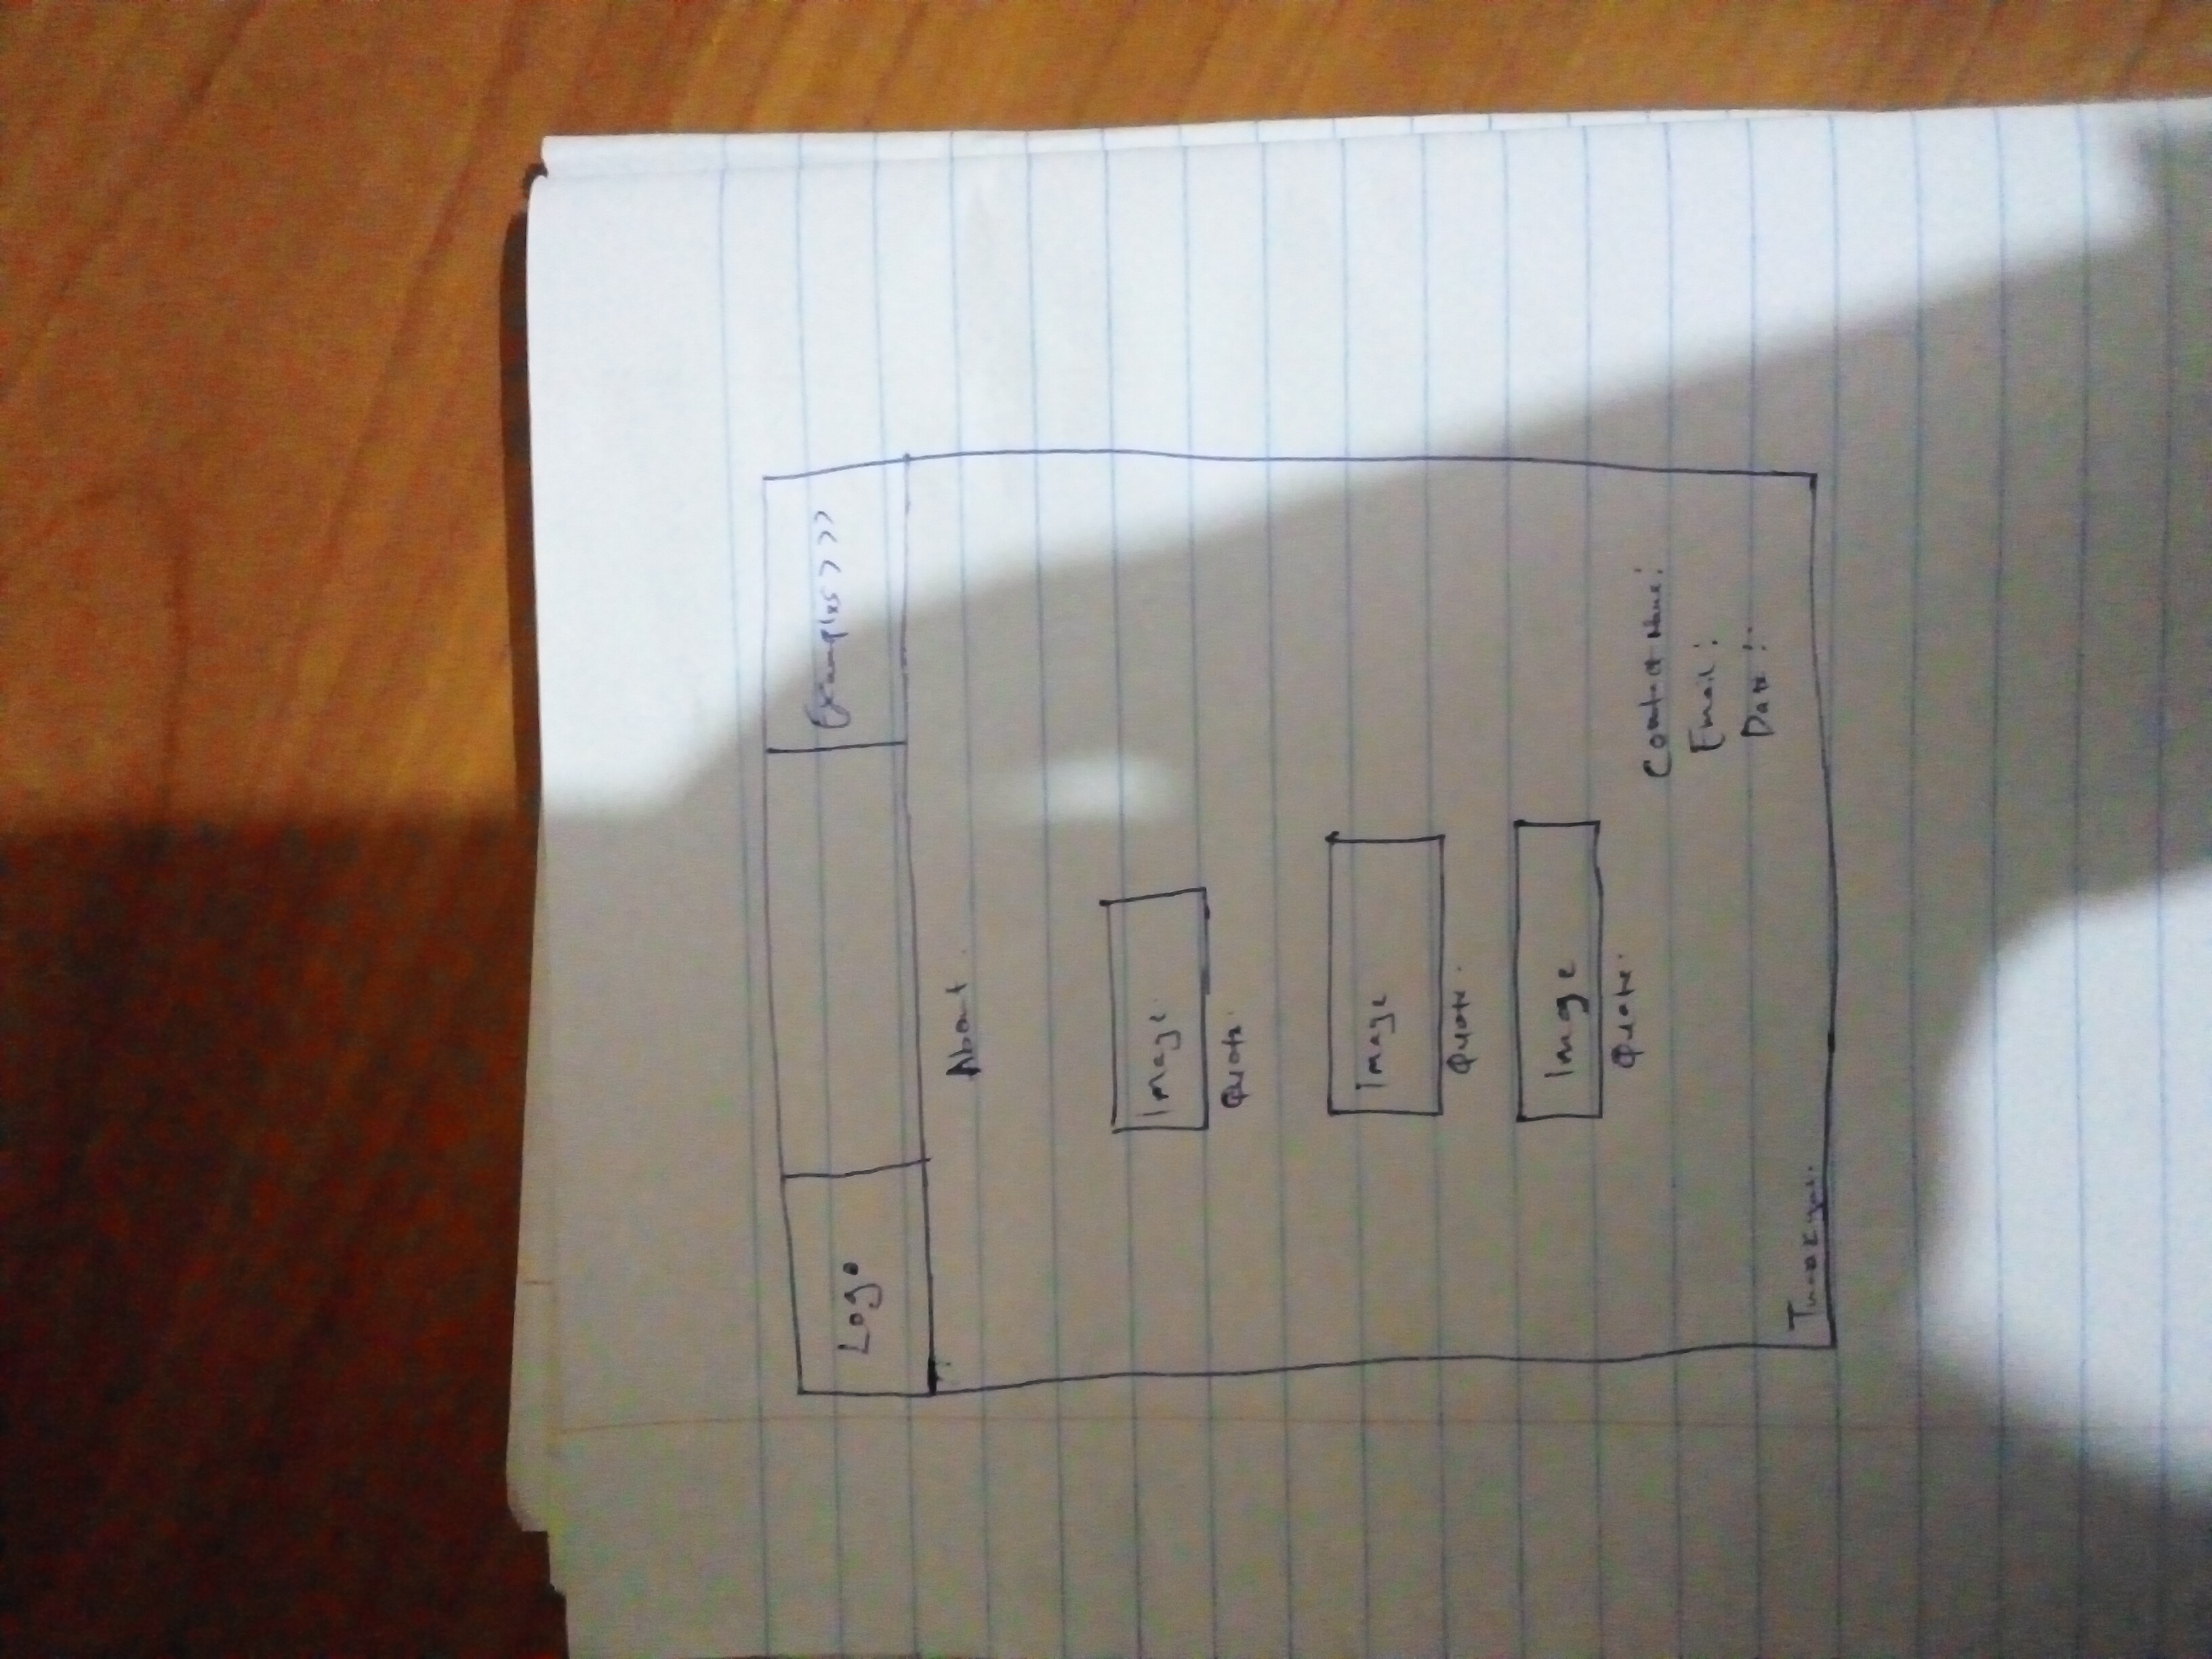 Logo
Examples >>>
About.
Image.
Quote.
Image
Quote.
Image
Quote.
Contact Name:
Email:
Date:
Thank you.